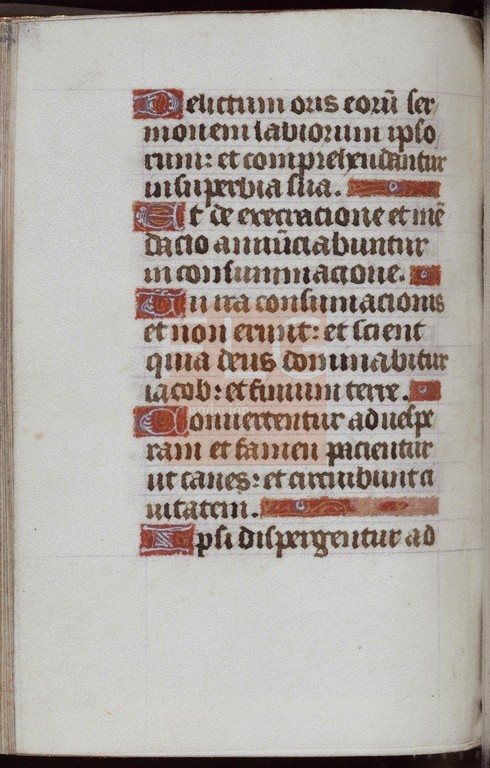 Delictum oris eorū ser
monem labiorum ipso
rum: et comprehendantur
in superbia sua.
Et de execratione et mē
dacio annūciabuntur
in consummacione.
In ira consumacionis
et non erunt: et scient
quia deus dominabitur
iacob: et finium terre.
Convertentur ad vespe
ram et famem pacientur
ut canes: et circuibunt ci
vitatem.
Ipsi dispergentur ad